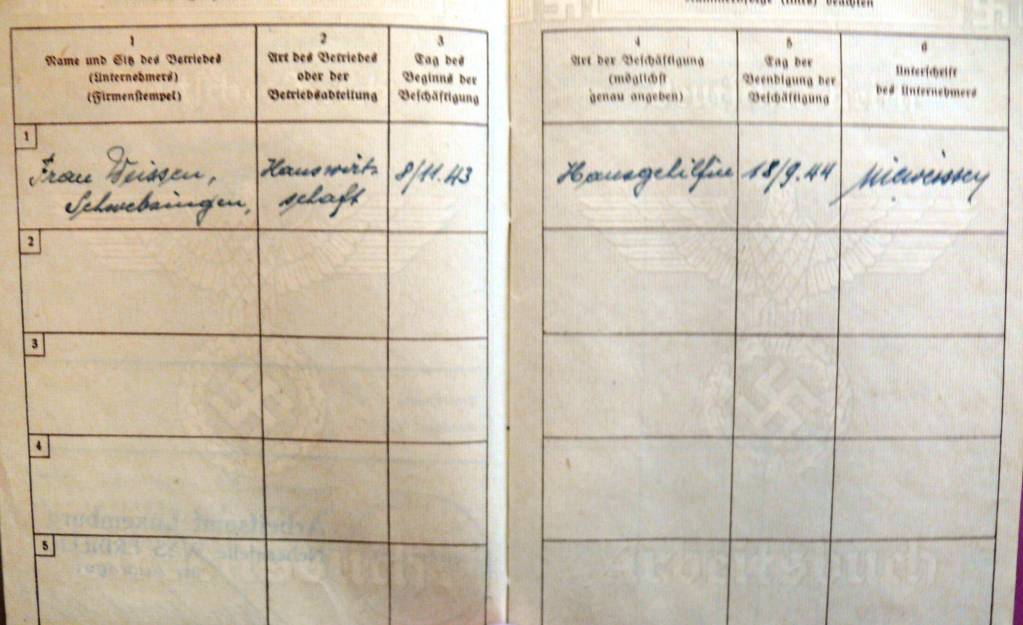 Nummernfolge (links) beachten
1
Name und Sitz des Betriebes
(Unternehmers)
(Firmenstempel)
2
Art des Betriebes
oder der
Betriebsabteilung
3
Tag des
Beginns der
Beschäftigung
4
Art der Beschäftigung
(möglichst
genau angeben)
5
Tag der
Beendigung der
Beschäftigung
6
Unterschrift
des Unternehmers
1
Frau Weissen,
Schwebsingen,
Hauswirt-
schaft
8/11.43
Hausgehilfin
18/9.44
2
3
4
5
Arbeitsamt Luxemburg
Arbeitsbuch